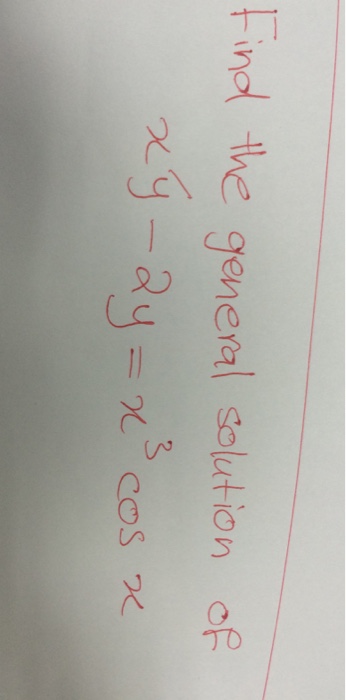 Find the general solution of
xy' - 2y = x³ cos x